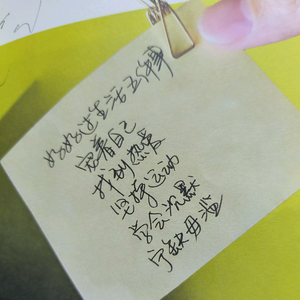 好好过生活五件事
宠着自己
找到热爱
坚持运动
学会沉默
宁缺毋滥